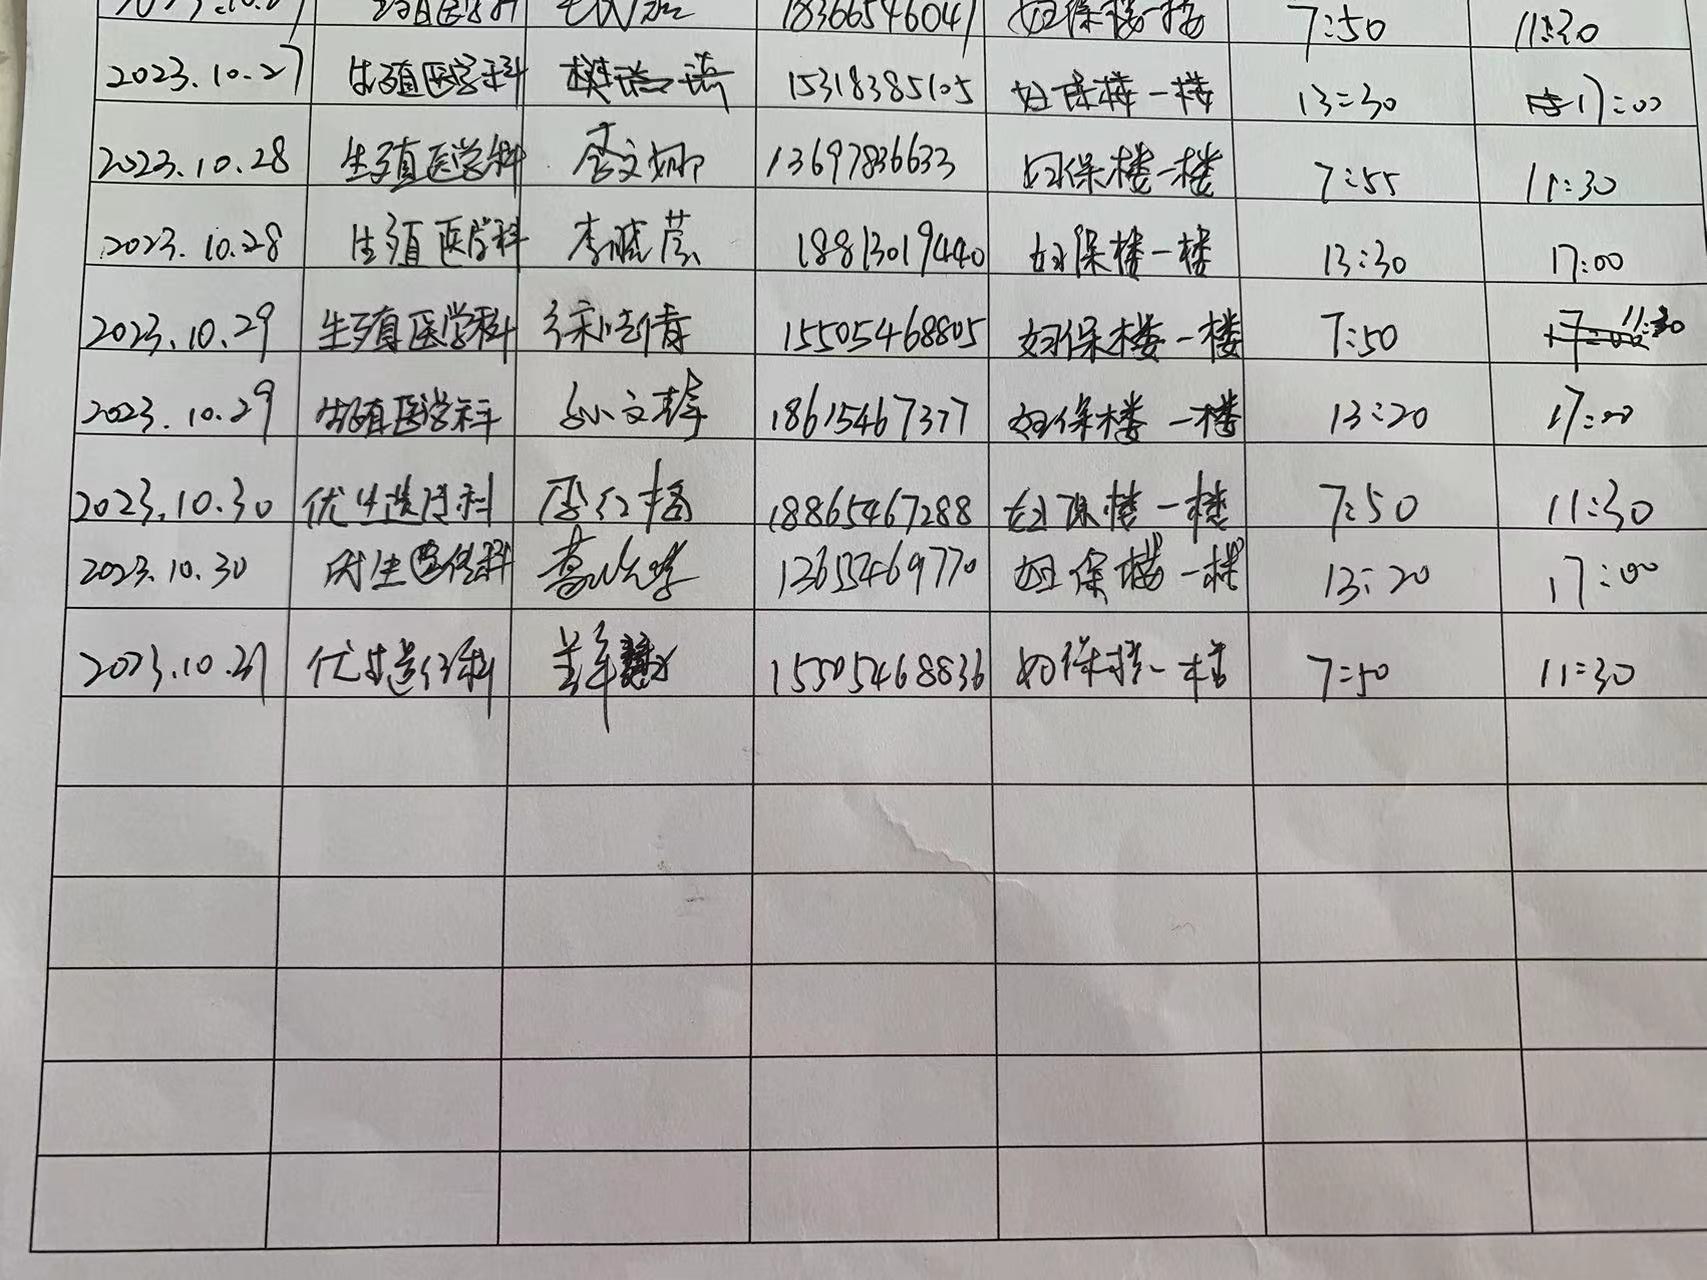 18366546041 妇保楼一楼 7:50 11:30
2023.10.27 生殖医学科 15318385105 妇保楼一楼 13:30 17:00
2023.10.28 生殖医学科 李文娜 13697836633 妇保楼一楼 7:55 11:30
2023.10.28 生殖医学科 李晓芸 18813019440 妇保楼一楼 13:30 17:00
2023.10.29 生殖医学科 徐晓倩 15505468805 妇保楼一楼 7:50 11:30
2023.10.29 生殖医学科 孙文 18615467377 妇保楼一楼 13:20 17:00
2023.10.30 优生遗传科 18865467288 妇保楼一楼 7:50 11:30
2023.10.30 优生遗传科 13655469770 妇保楼一楼 13:20 17:00
2023.10.31 优生遗传科 15505468836 妇保楼一楼 7:50 11:30